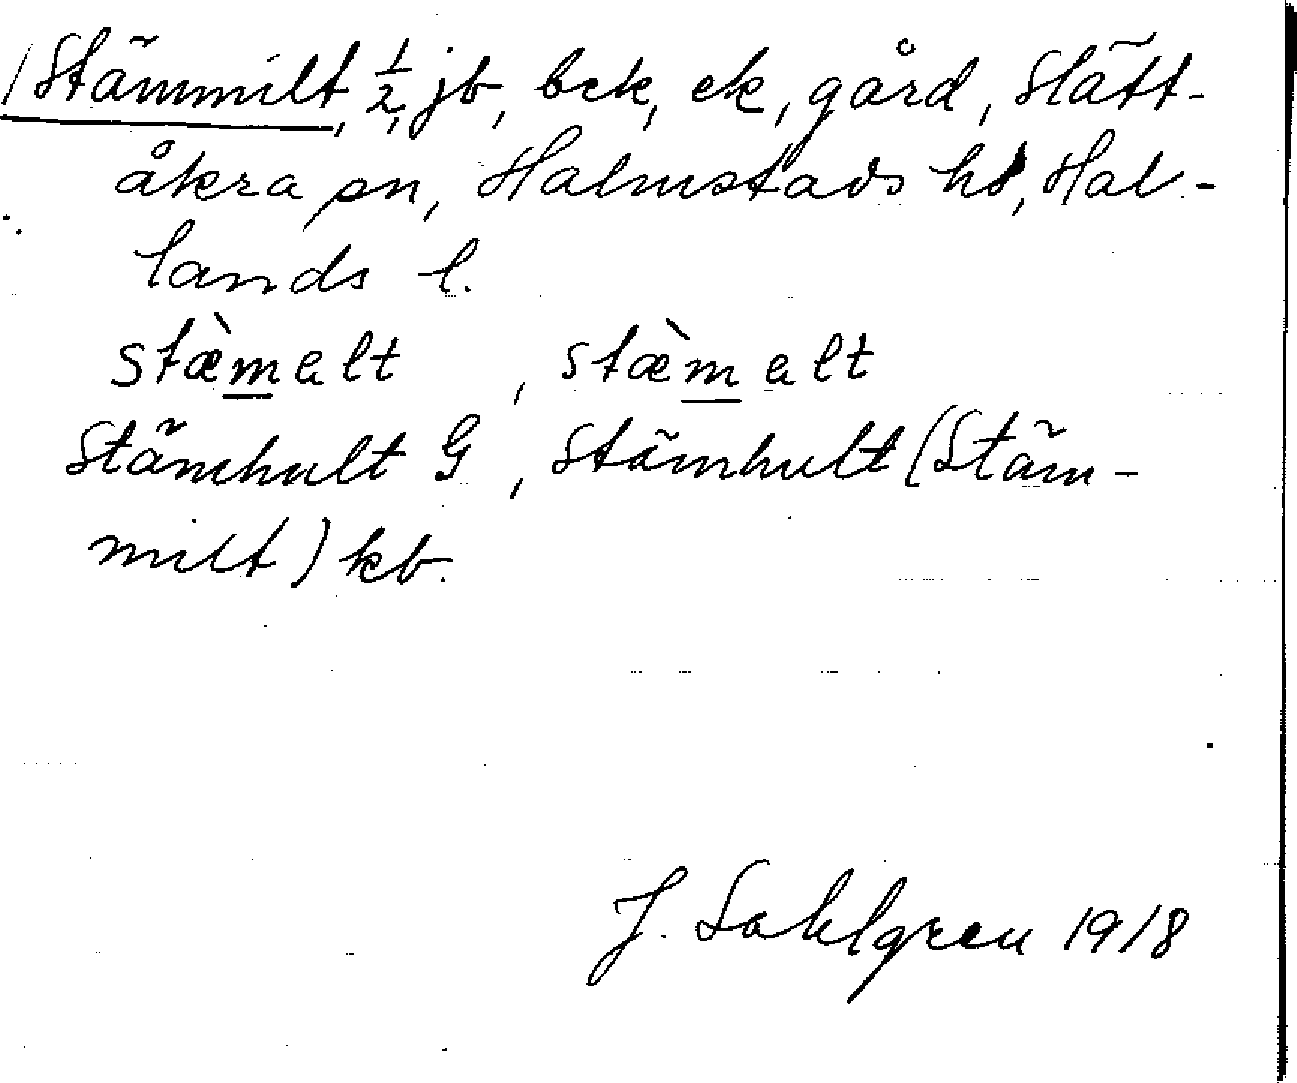 /Stämmilt, 1/2, jb, bek, ek, gård, Slätt-
åkra sn, Halmstads hd, Hal-
lands l.
stæ̀malt , stæ̀malt
Stämhult G, Stämhult (Stäm-
milt) kb.
J. Sahlgren 1918